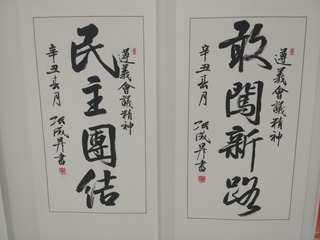 遵義會議精神
敢闖新路
辛丑春月
張成昇書
遵義會議精神
民主團結
辛丑春月
張成昇書